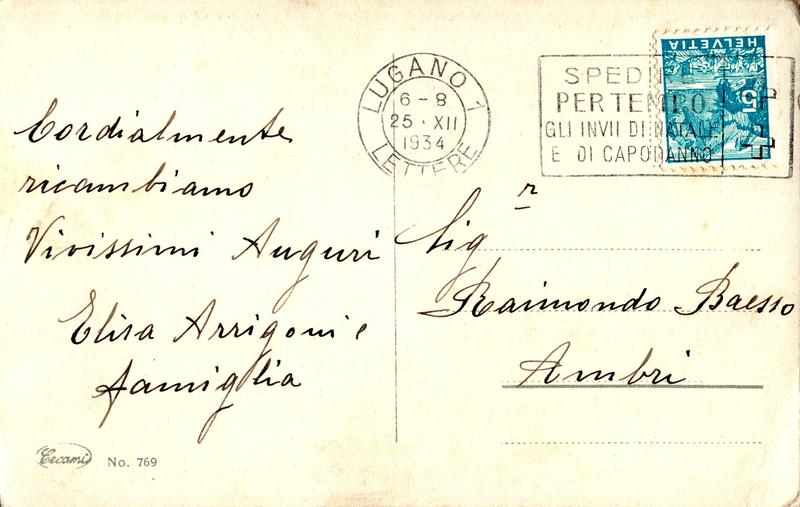 Cordialmente
ricambiamo
Vivissimi Auguri
Elisa Arrigoni e
famiglia
Cecami No. 769
LUGANO 1
6-8
25·XII
1934
LETTERE
SPEDITE
PER TEMPO
GLI INVII DI NATALE
E DI CAPODANNO
HELVETIA
5
Sigr
Raimondo Baesso
Ambri